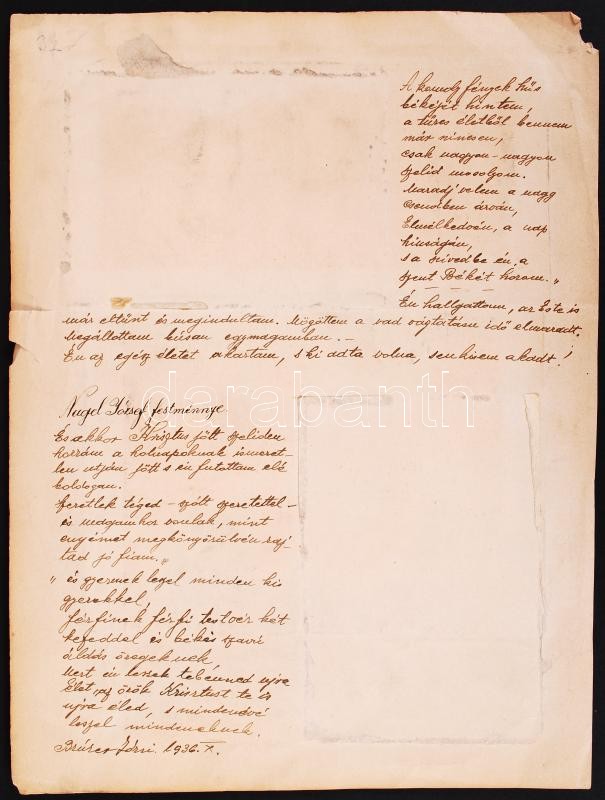 A komoly fények hűs
békéjét hintem,
a tüzes életből bennem
már nincsen,
csak nagyon-nagyon
szelíd mosolyom.
Maradj velem a nagy
csendben árván,
Elmélkedvén, a nap
hiuságán,
s a szivedbe én a
szent Békét hozom."
Én hallgattam, az Este is
már eltünt és megindultam. Mögöttem a vad vágtatásu idő elmaradt.
Megállottam búsan egymagamban. -
Én az egész életet akartam, s ki adta volna, sen kisem akadt!
Nagel József festménnye
És akkor Krisztus jött szeliden
hozzám a holnapoknak ismeret-
len utján jött s én futottam elé
boldogan.
Szeretlek téged - szólt szeretettel -
és magamhoz vonlak, mint
enyémet megkönyörülvén raj-
tad jó fiam."
"és gyermek legel minden kis
gyerekkel,
férfinek férfi testvér két
kezeddel és békés szavú
áldás öregeknek,
Mert én leszek tebenned ujra
Élet, az örök Krisztust te is
ujra éled, s mindenévé
leszel mindeneknek.
1936. X.
darabanth
32